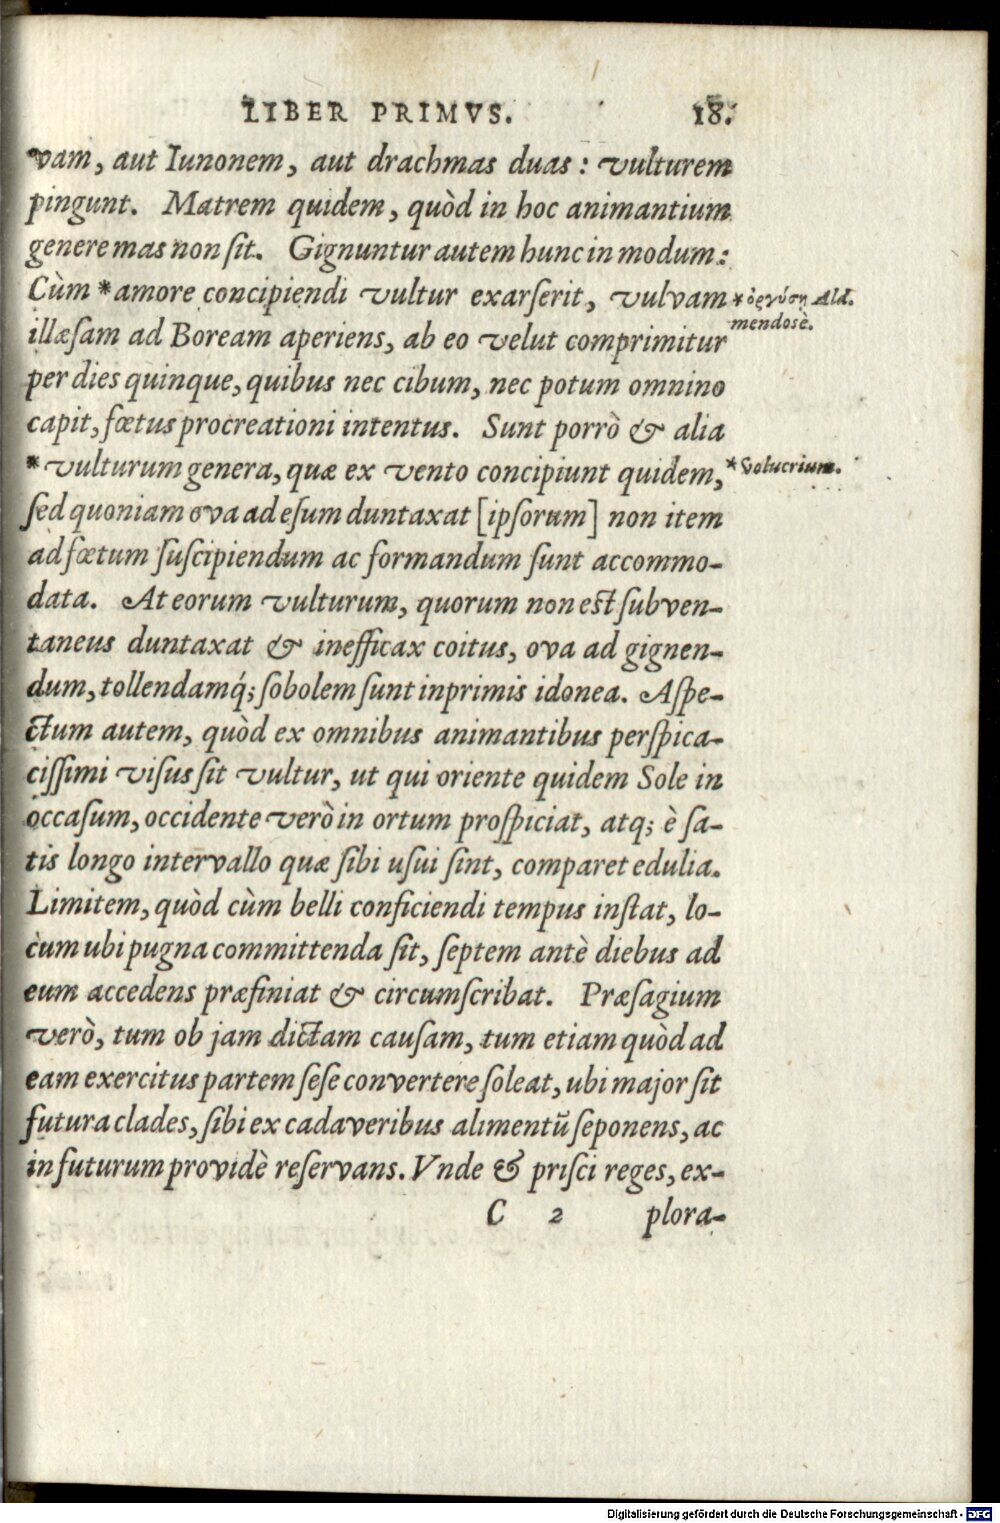 LIBER PRIMVS. 18.
vam, aut Iunonem, aut drachmas duas: vulturem
pingunt. Matrem quidem, quòd in hoc animantium
genere mas non ſit. Gignuntur autem hunc in modum:
Cùm * amore concipiendi vultur exarſerit, vulvam
* ὀργύσῃ Ald.
mendosè.
illæſam ad Boream aperiens, ab eo velut comprimitur
per dies quinque, quibus nec cibum, nec potum omnino
capit, fœtus procreationi intentus. Sunt porrò & alia
* vulturum genera, quæ ex vento concipiunt quidem,
* Volucrium.
ſed quoniam ova ad eſum duntaxat [ipſorum] non item
ad fœtum ſuſcipiendum ac formandum ſunt accommo-
data. At eorum vulturum, quorum non eſt ſubven-
taneus duntaxat & inefficax coitus, ova ad gignen-
dum, tollendamq́; ſobolem ſunt inprimis idonea. Aſpe-
ctum autem, quòd ex omnibus animantibus perſpica-
ciſſimi viſus ſit vultur, ut qui oriente quidem Sole in
occaſum, occidente verò in ortum proſpiciat, atq; è ſa-
tis longo intervallo quæ ſibi uſui ſint, comparet edulia.
Limitem, quòd cùm belli conficiendi tempus inſtat, lo-
cum ubi pugna committenda ſit, ſeptem antè diebus ad
eum accedens præfiniat & circumſcribat. Præſagium
verò, tum ob jam dictam cauſam, tum etiam quòd ad
eam exercitus partem ſeſe convertere ſoleat, ubi major ſit
futura clades, ſibi ex cadaveribus alimentũ ſeponens, ac
in futurum providè reſervans. Vnde & priſci reges, ex-
C 2 plora-
Digitalisierung gefördert durch die Deutsche Forschungsgemeinschaft - DFG